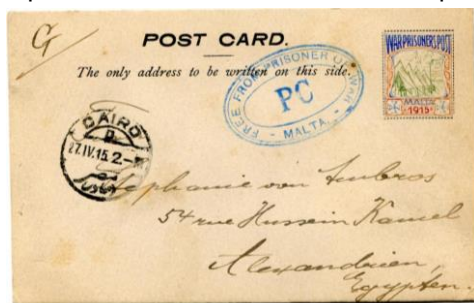 G
POST CARD.
The only address to be written on this side.
FREE FROM PRISONER OF WAR
PC
- MALTA. -
WAR PRISONERS POST
MALTA
1915
CAIRO
D.
27.IV.15.2-
Stephanie von Ambros
54 rue Hussein Kamel
Alexandrien,
Egypten.